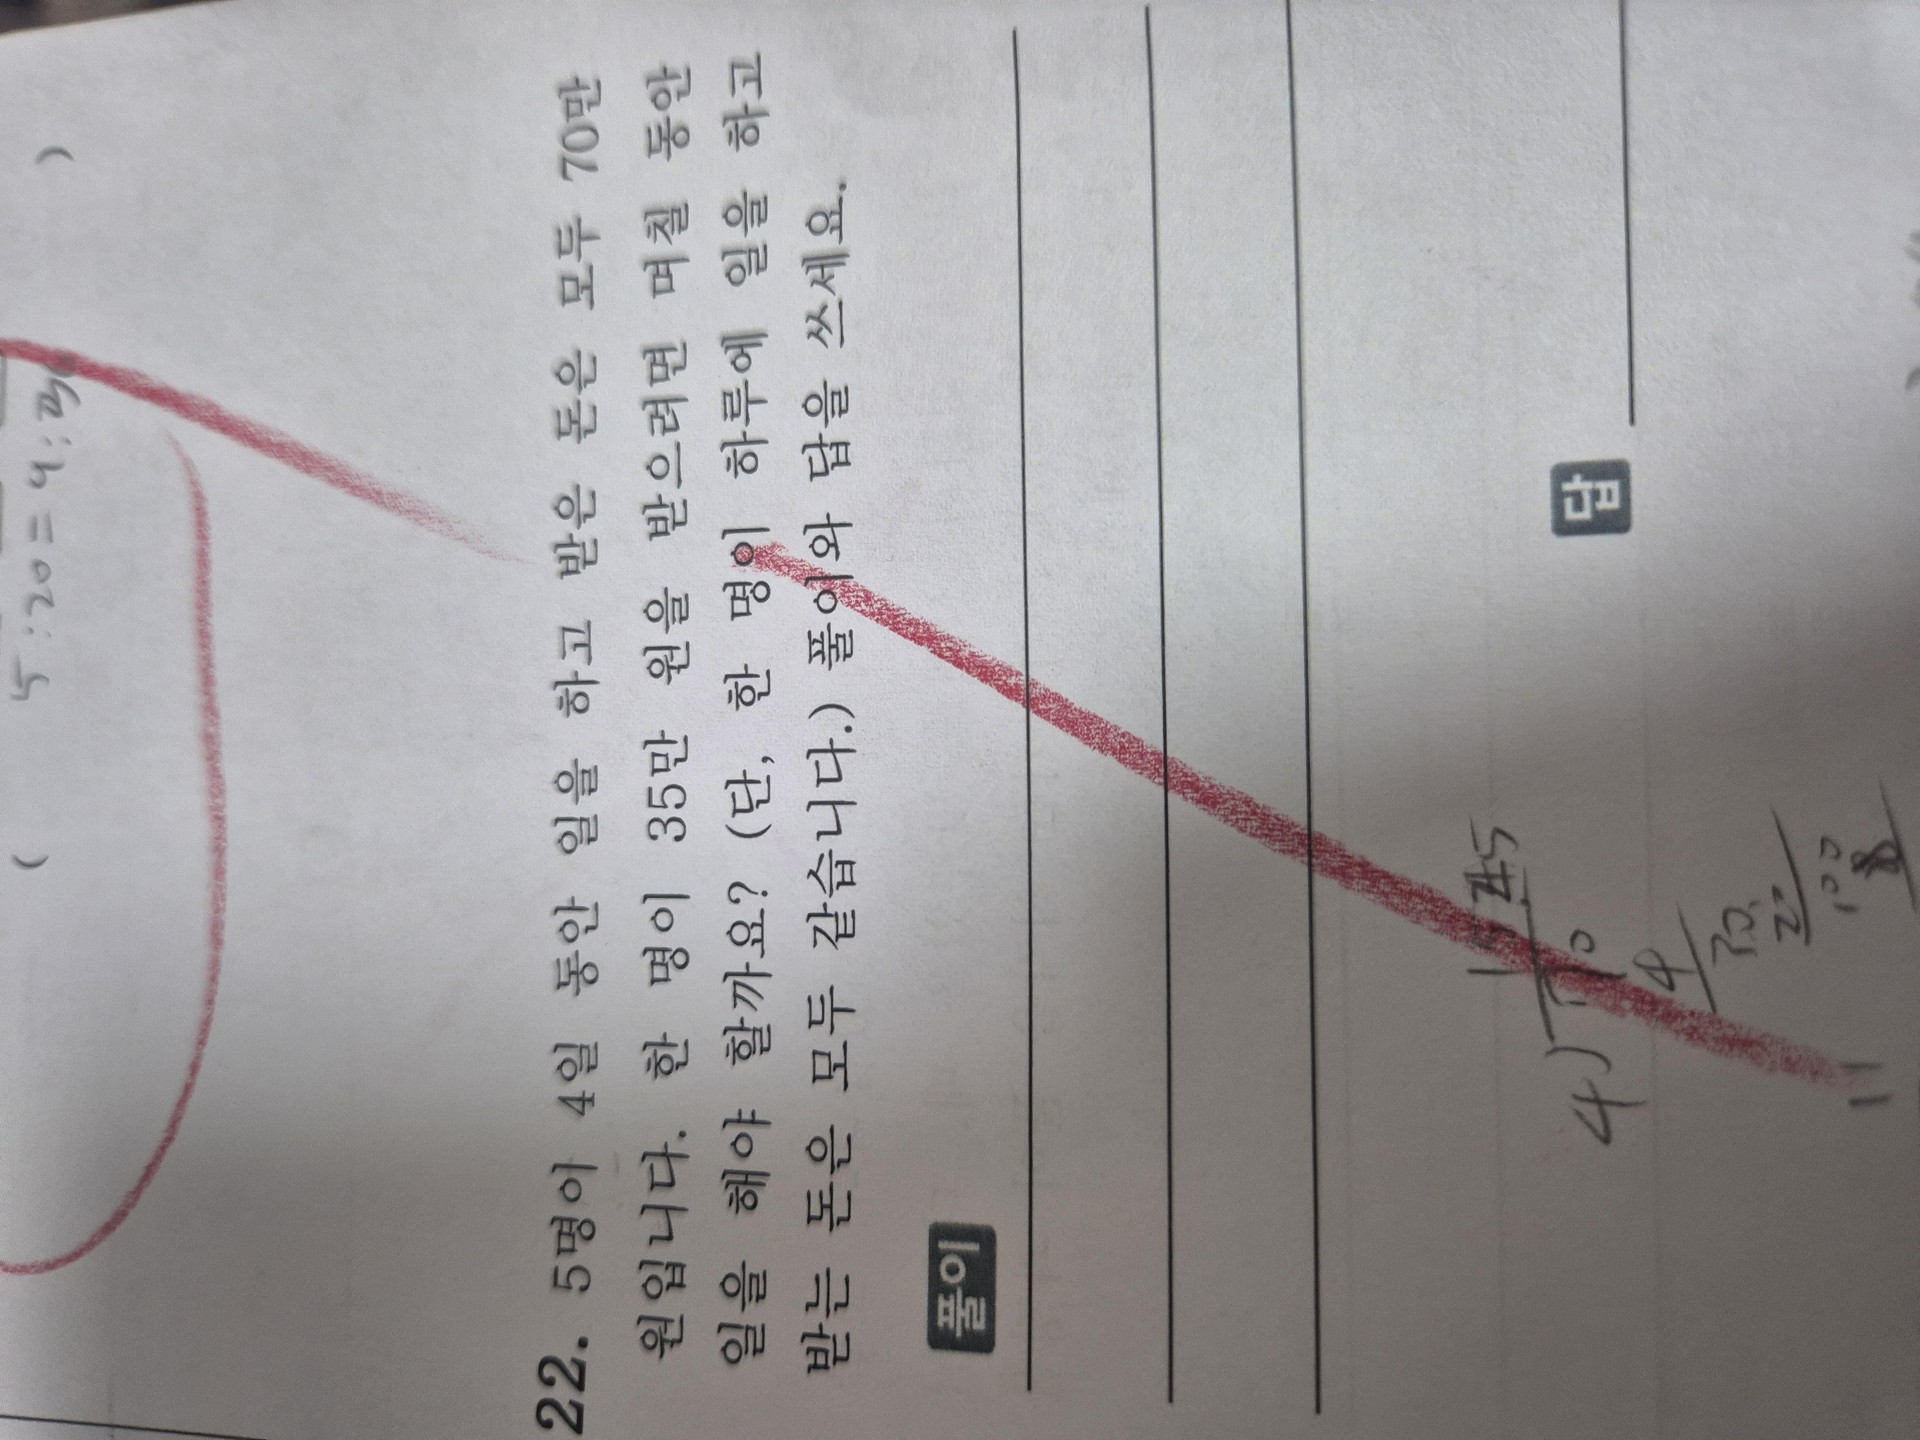 ( )
5:20=4:
22. 5명이 4일 동안 일을 하고 받은 돈은 모두 70만
원입니다. 한 명이 35만 원을 받으려면 며칠 동안
일을 해야 할까요? (단, 한 명이 하루에 일을 하고
받는 돈은 모두 같습니다.) 풀이와 답을 쓰세요.
풀이
답
4)70
4
100